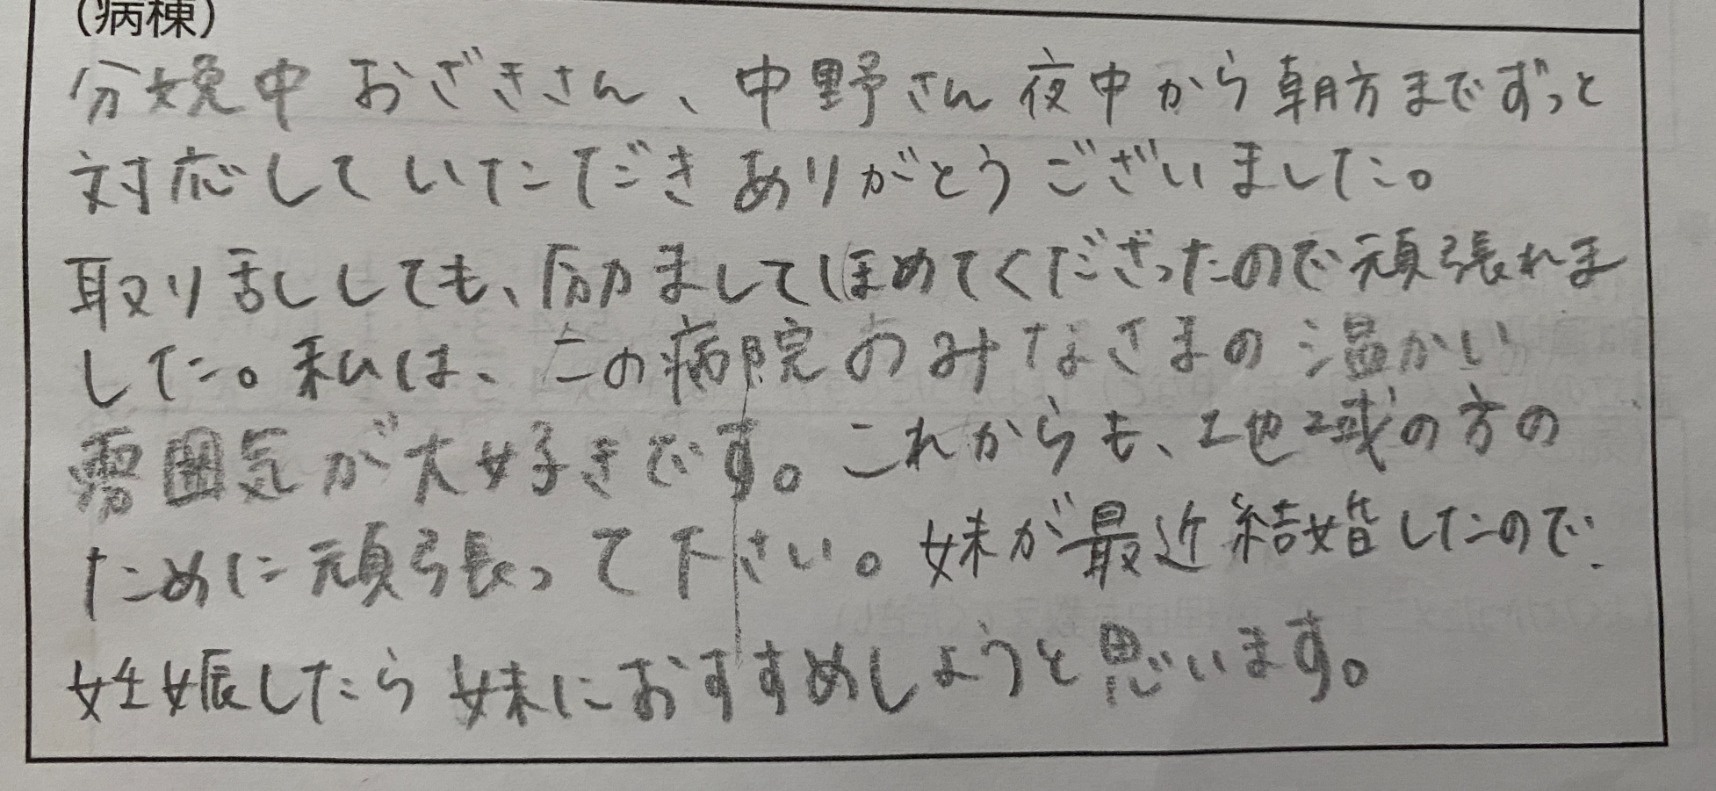 （病棟）
分娩中 おざきさん、中野さん 夜中から 朝方まで ずっと
対応していただき ありがとう ございました。
取り乱しても、励ましてほめてくださったので頑張れま
した。私は、この病院のみなさまの温かい
雰囲気が大好きです。これからも、地域の方の
ために頑張って下さい。妹が最近結婚したので
妊娠したら妹におすすめしようと思います。